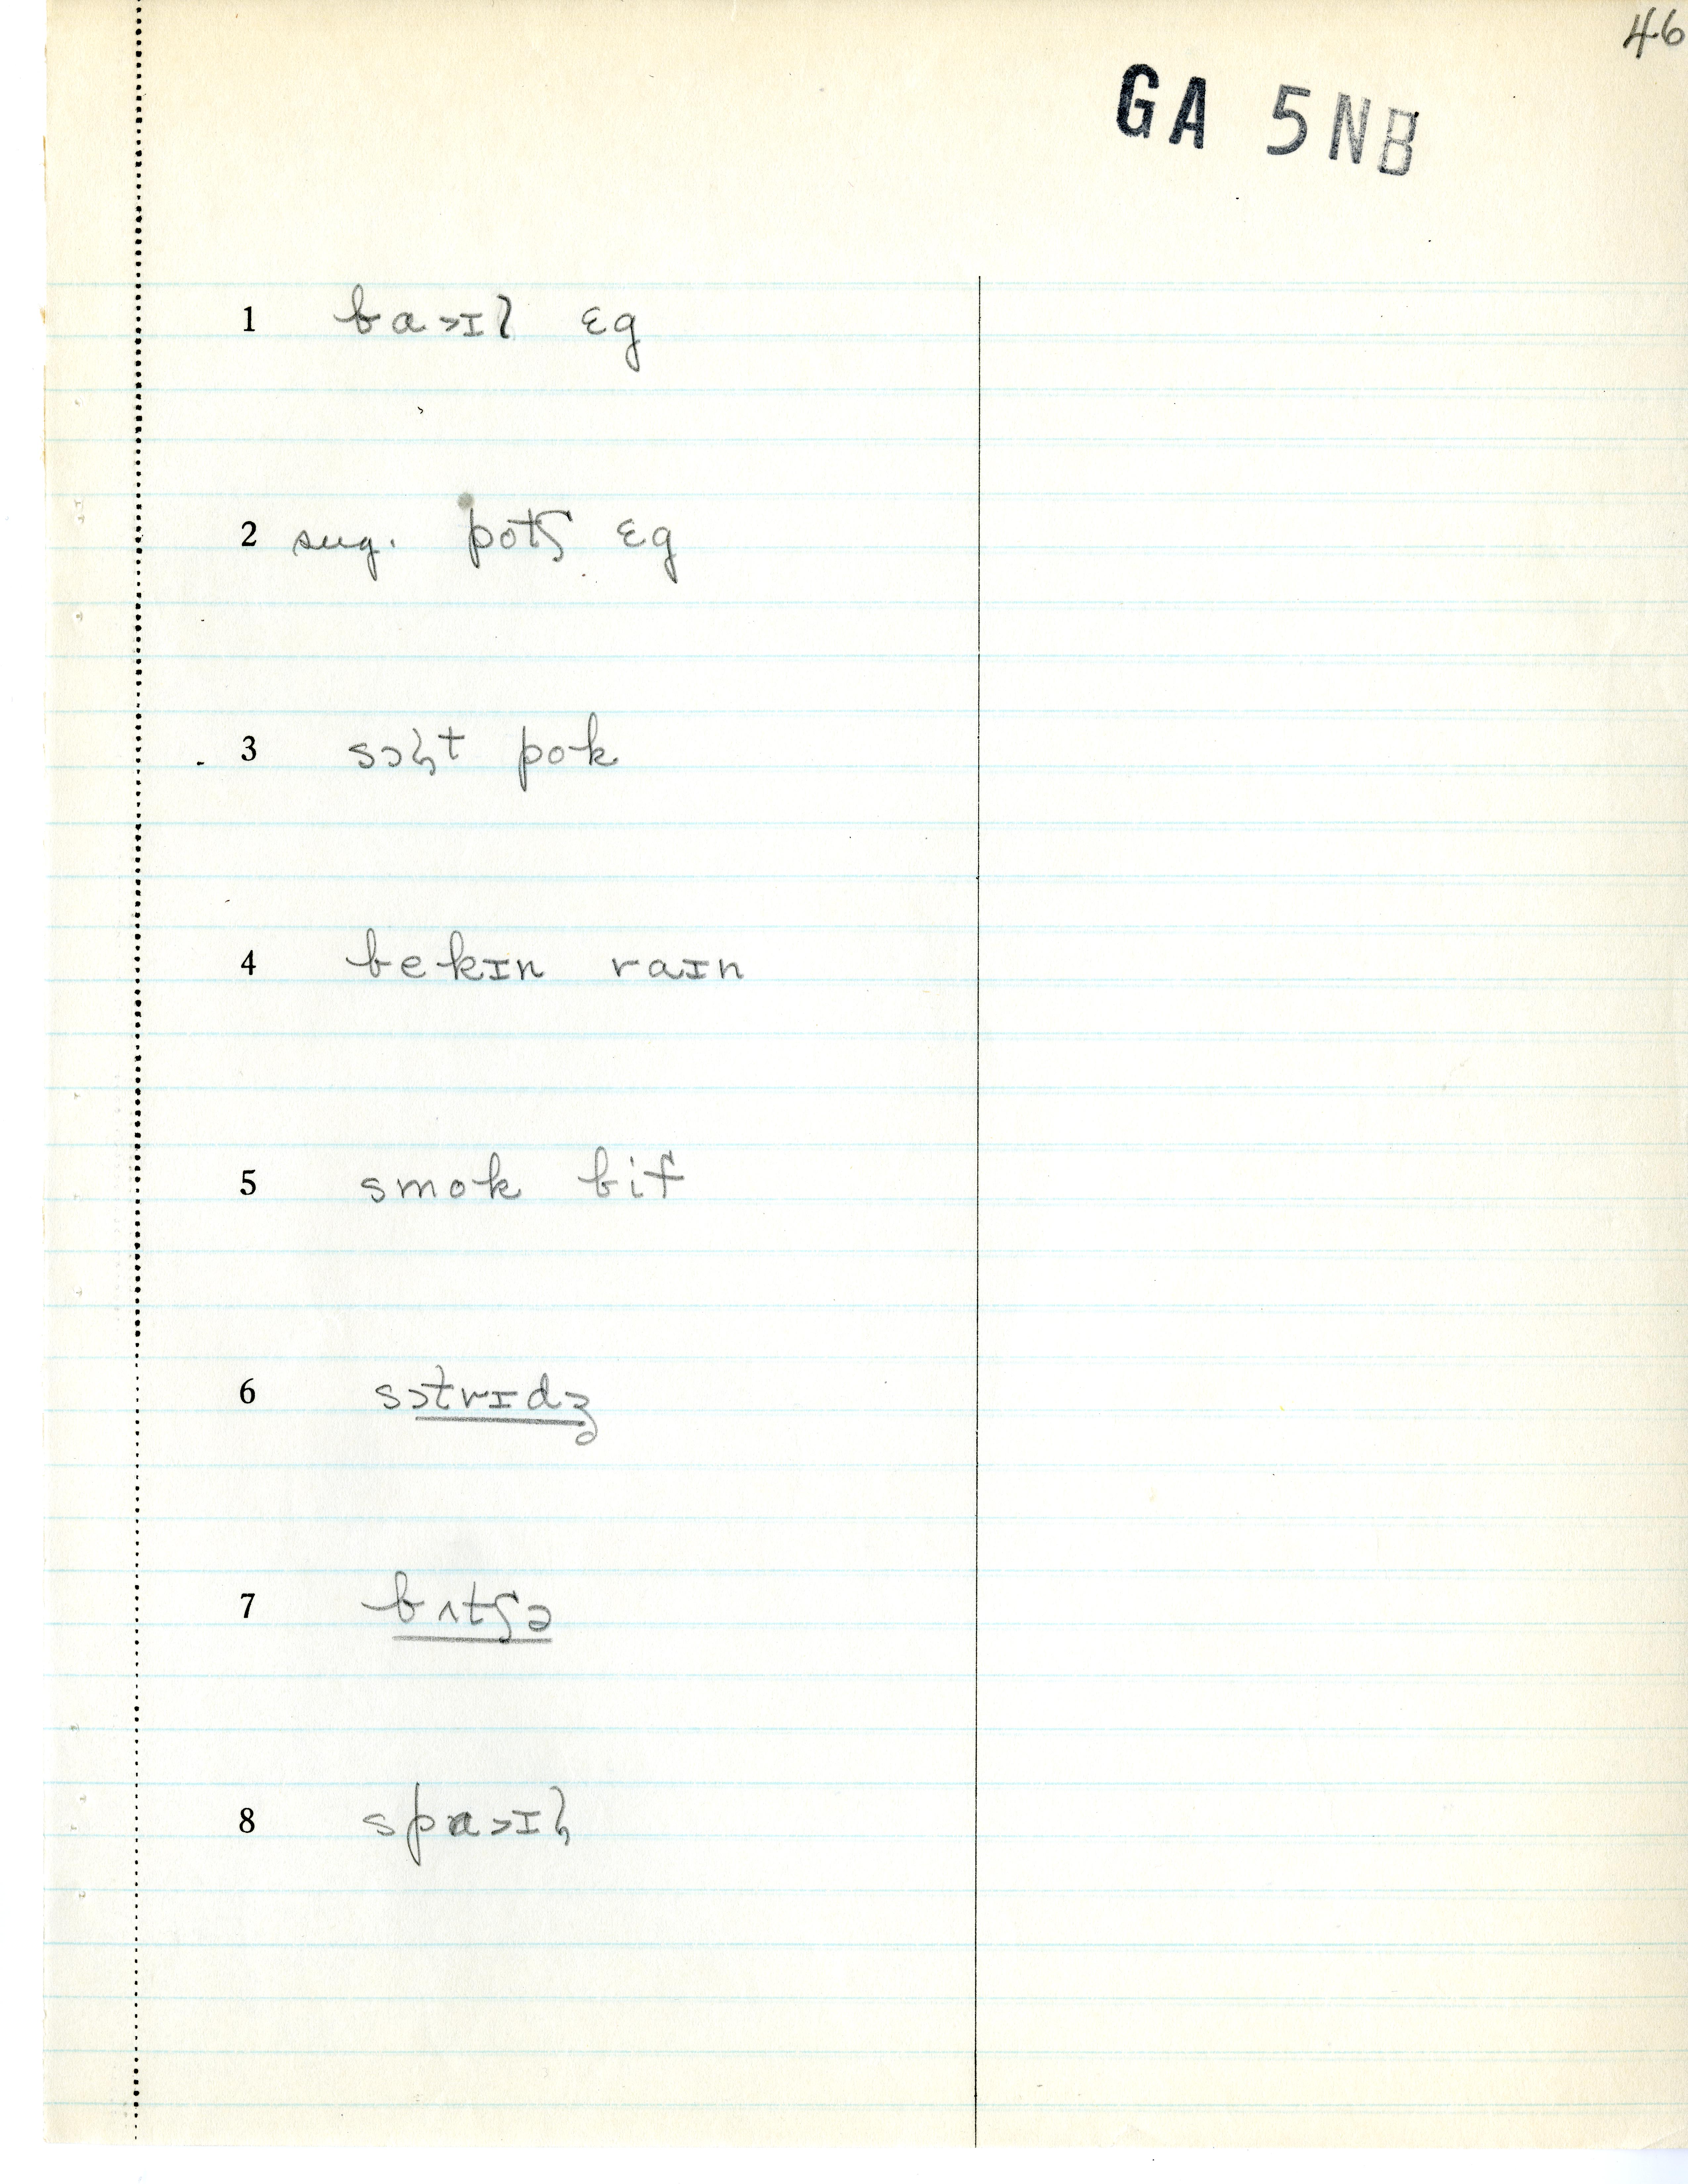 46
GA 5NB
1 ba>ɪl ɛg
2 sug. potʃ ɛg
3 sɔl̡t pok
4 bekɪn raɪn
5 smok bif
6 sɔtrɪdʒ
7 bʌtʃə
8 spa>ɪl̡